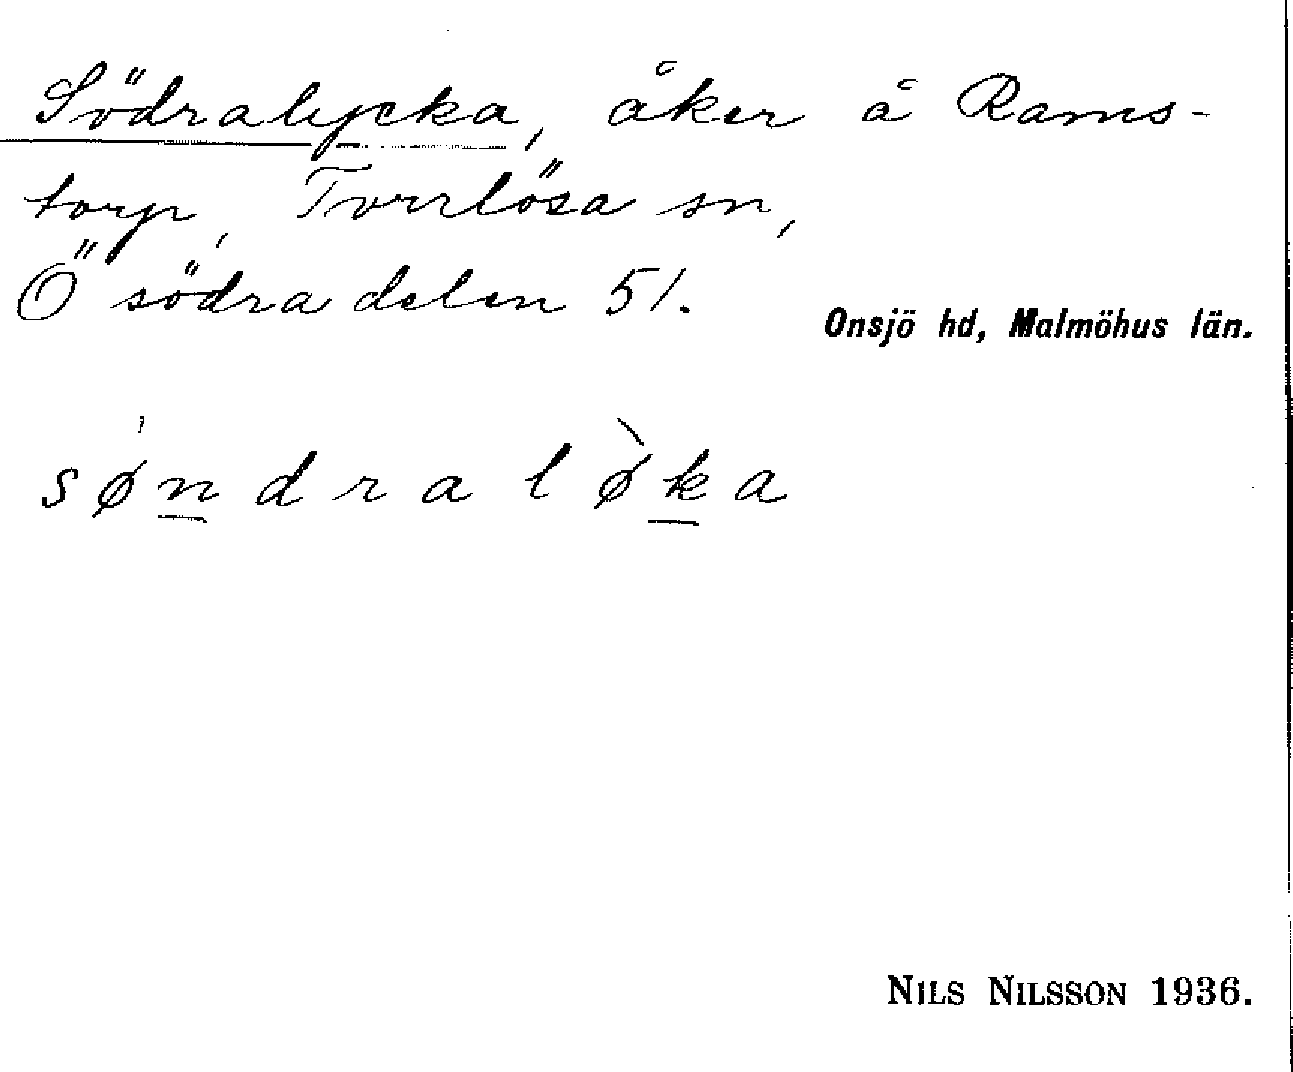 Södralycka, åker å Rams-
torp, Torrlösa sn,
Ö södra delen 51.
Onsjö hd, Malmöhus län.
sǿndralø̀ka
NILS NILSSON 1936.